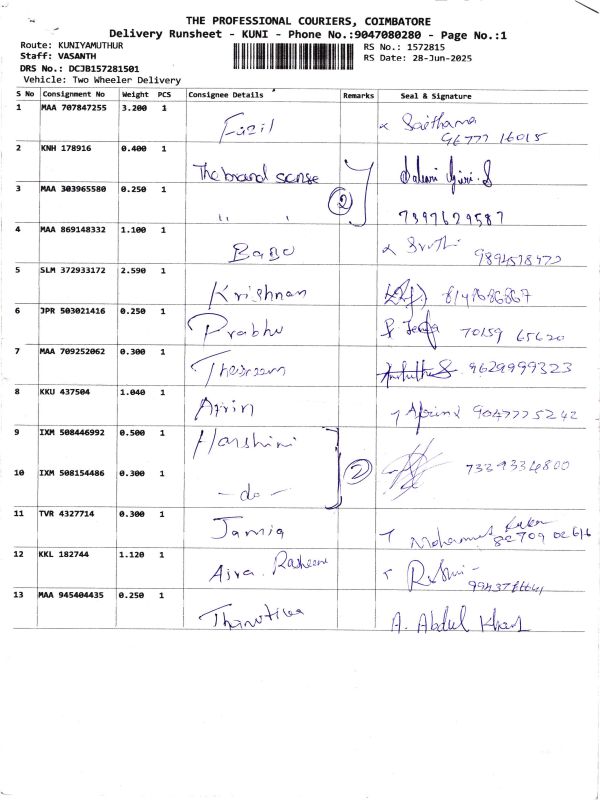 THE PROFESSIONAL COURIERS, COIMBATORE
Delivery Runsheet - KUNI - Phone No.:9047080280 - Page No.:1
Route: KUNIYAMUTHUR RS No.: 1572815
Staff: VASANTH RS Date: 28-Jun-2025
DRS No.: DCJB157281501
Vehicle: Two Wheeler Delivery
S No Consignment No Weight PCS Consignee Details Remarks Seal & Signature
1 MAA 707847255 3.200 1 Fazil
96777 16015
2 KNH 178916 0.400 1 The brand sense
3 MAA 303965580 0.250 1 " " 2 7397629587
4 MAA 869148332 1.100 1 Babu Sruthi 9894578470
5 SLM 372933172 2.590 1 Krishnan
6 JPR 503021416 0.250 1 Prabhu 70159 65620
7 MAA 709252062 0.300 1 9629999323
8 KKU 437504 1.040 1 Afrin Afrin 9047775242
9 IXM 508446992 0.500 1 Harshini
10 IXM 508154486 0.300 1 - do - 2 7339334800
11 TVR 4327714 0.300 1 Jamia
82709 02616
12 KKL 182744 1.120 1 Ajra
13 MAA 945404435 0.250 1 A. Abdul Khan